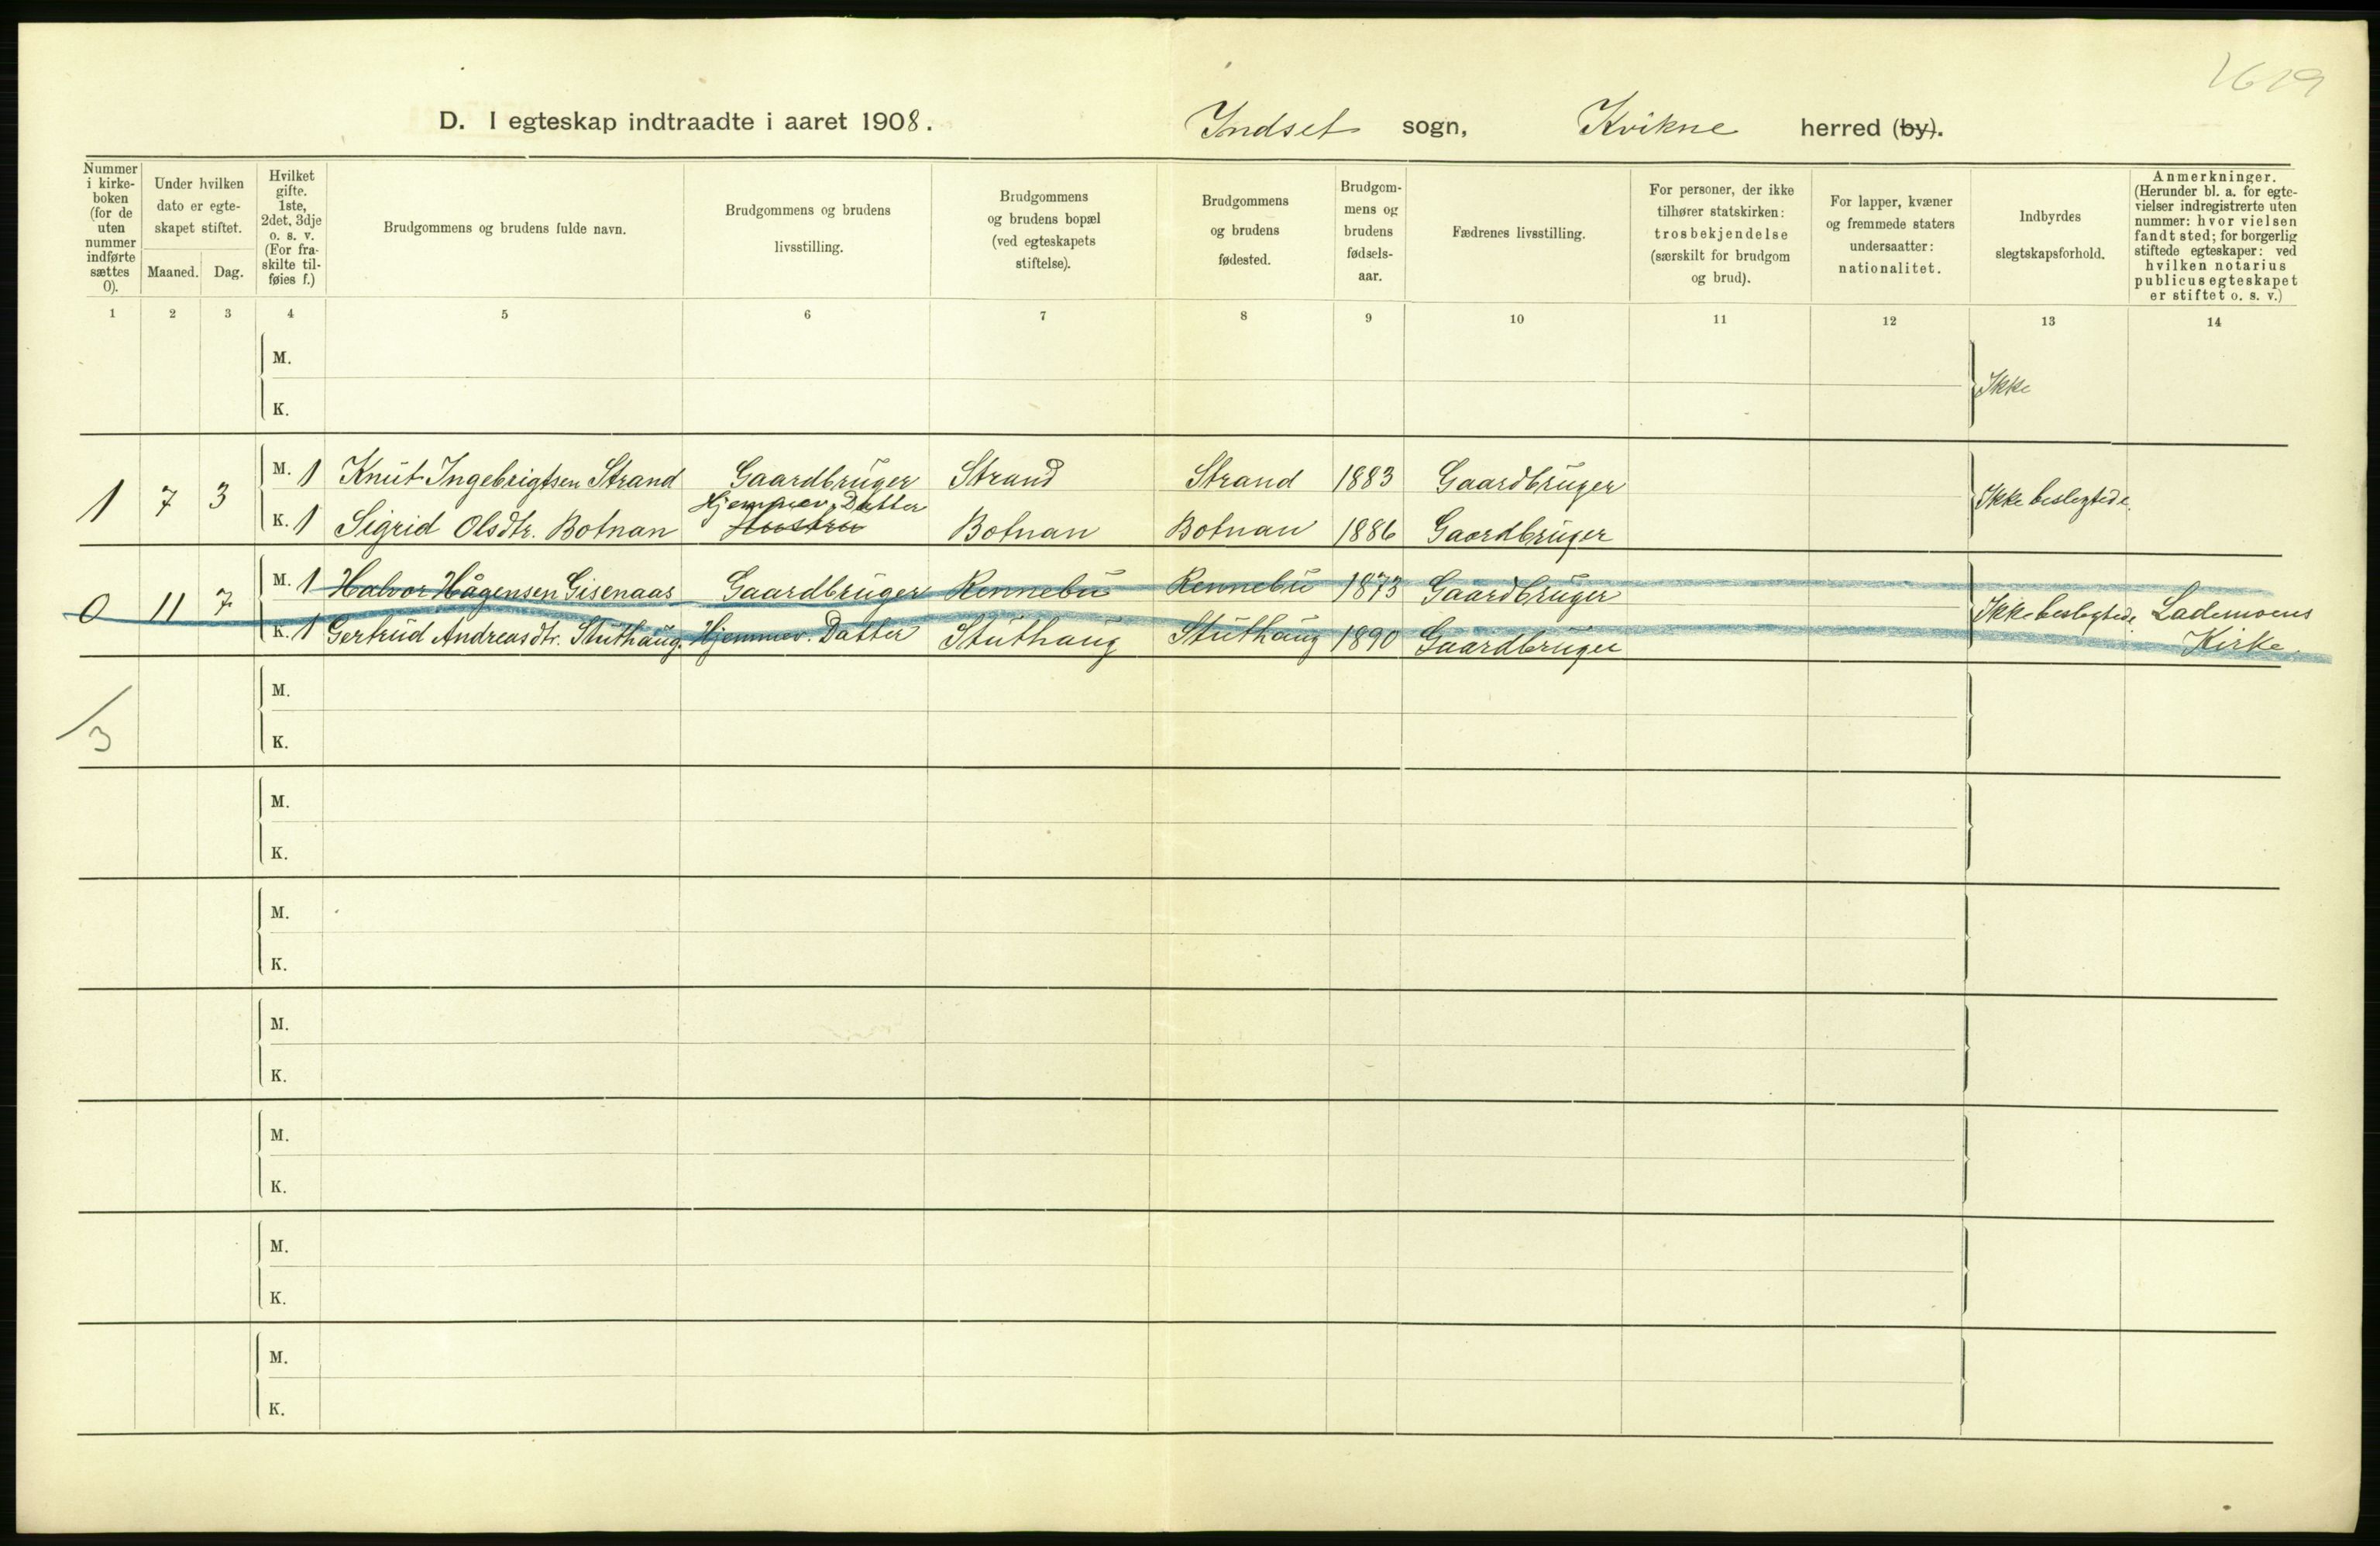 1619
D. I egteskap indtraadte i aaret 1908. Indset sogn, Kvikne herred (by).
Nummer i kirke-boken (for de uten nummer indførte sættes 0).
Under hvilken dato er egte-skapet stiftet.
Maaned. Dag.
Hvilket gifte. 1ste, 2det, 3dje o. s. v. (For fra-skilte til-føies f.)
Brudgommens og brudens fulde navn.
Brudgommens og brudens livsstilling.
Brudgommens og brudens bopæl (ved egteskapets stiftelse).
Brudgommens og brudens fødested.
Brudgom-mens og brudens fødsels-aar.
Fædrenes livsstilling.
For personer, der ikke tilhører statskirken: trosbekjendelse (særskilt for brudgom og brud).
For lapper, kvæner og fremmede staters undersaatter: nationalitet.
Indbyrdes slegtskapsforhold.
Anmerkninger. (Herunder bl. a. for egte-vielser indregistrerte uten nummer: hvor vielsen fandt sted; for borgerlig stiftede egteskaper: ved hvilken notarius publicus egteskapet er stiftet o. s. v.)
1 2 3 4 5 6 7 8 9 10 11 12 13 14
M.
Ikke
K.
1 7 3 M. 1 Knut Ingebrigtsen Strand Gaardbruger Strand Strand 1883 Gaardbruger Ikke beslegtede.
Hjemmev. Datter
K. 1 Sigrid Olsdtr. Botnan Botnan Botnan 1886 Gaardbruger
0 11 7 M. 1 Halvor Hågensen Gisenaas Gaardbruger Rennebu Rennebu 1873 Gaardbruger Ikke beslegtede. Lademoens
K. 1 Gertrud Andreasdtr. Stuthaug. Hjemmev. Datter Stuthaug Stuthaug 1890 Gaardbruger Kirke.
M.
3
K.
M.
K.
M.
K.
M.
K.
M.
K.
M.
K.
M.
K.